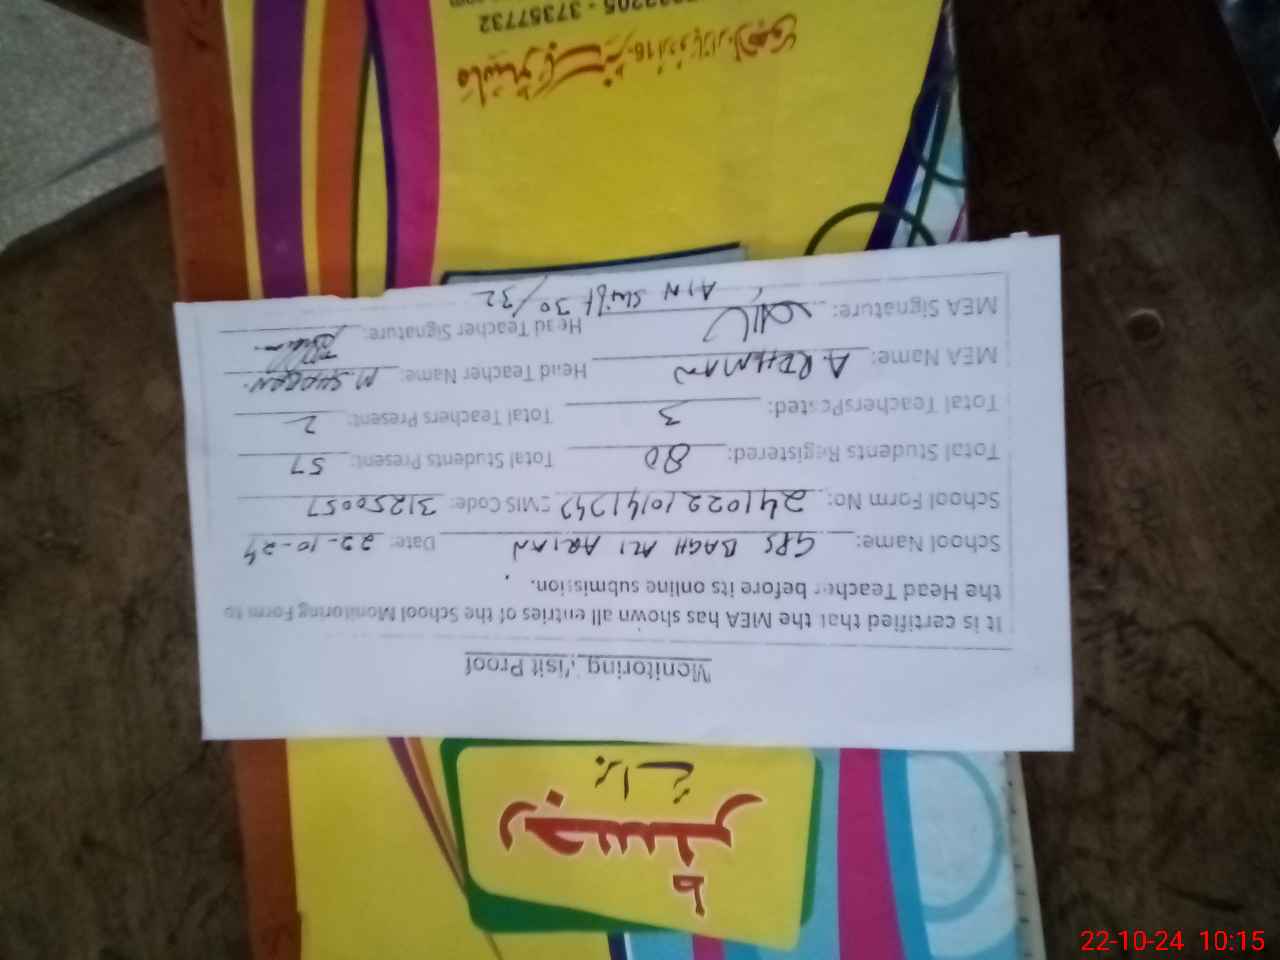 Monitoring Visit Proof
It is certified that the MEA has shown all entries of the School Monitoring Form to
the Head Teacher before its online submission.
School Name: GPS BAGH ALI ARIAN Date: 22-10-24
School Form No: EMIS Code: 31250057
Total Students Registered: 80 Total Students Present: 57
Total Teachers Posted: 3 Total Teachers Present: 2
MEA Name: A. REHMAN Head Teacher Name: M. SHABAN
MEA Signature: Head Teacher Signature:
30/32
رجسٹر
برائے
37357732
22-10-24 10:15